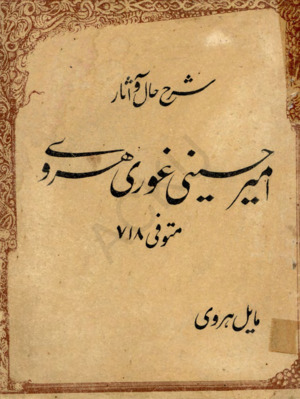 شرح حال و آثار
امیر حسینی غوری هروی
متوفی ۷۱۸
مایل هروی